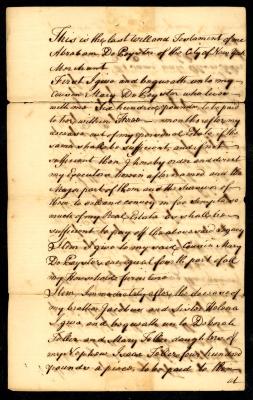 This is the last will and Testament of me
Abraham De Peyster of the City of New York
Merchant.
First I give and bequeath unto my
Cousin Mary De Peyster who lives
with me Six hundred pounds to be paid
to her within Three months after my
decease out of my personal Estate if the
same shall be sufficient and if not
sufficient then I hereby order and direct
my Executors herein after named and the
Major part of them and the survivor of
them to sell and convey in fee Simple so
much of my Real Estate as shall be
sufficient to pay off the aforesaid Legacy
Item I give to my said Cousin Mary
De Peyster one equal fourth part of all
my Household furniture
Item Immediately after the decease of
my Brother Jacobus and Sister Helena
I give and bequeath unto Deborah
Teller and Mary Teller daughters of
my Nephew Isaac Teller four hundred
pounds a piece, to be paid to them